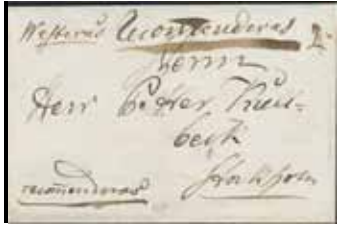 Westerås Recomenderas
Herrn
Herr Petter
beck
recomenderas Stockholm